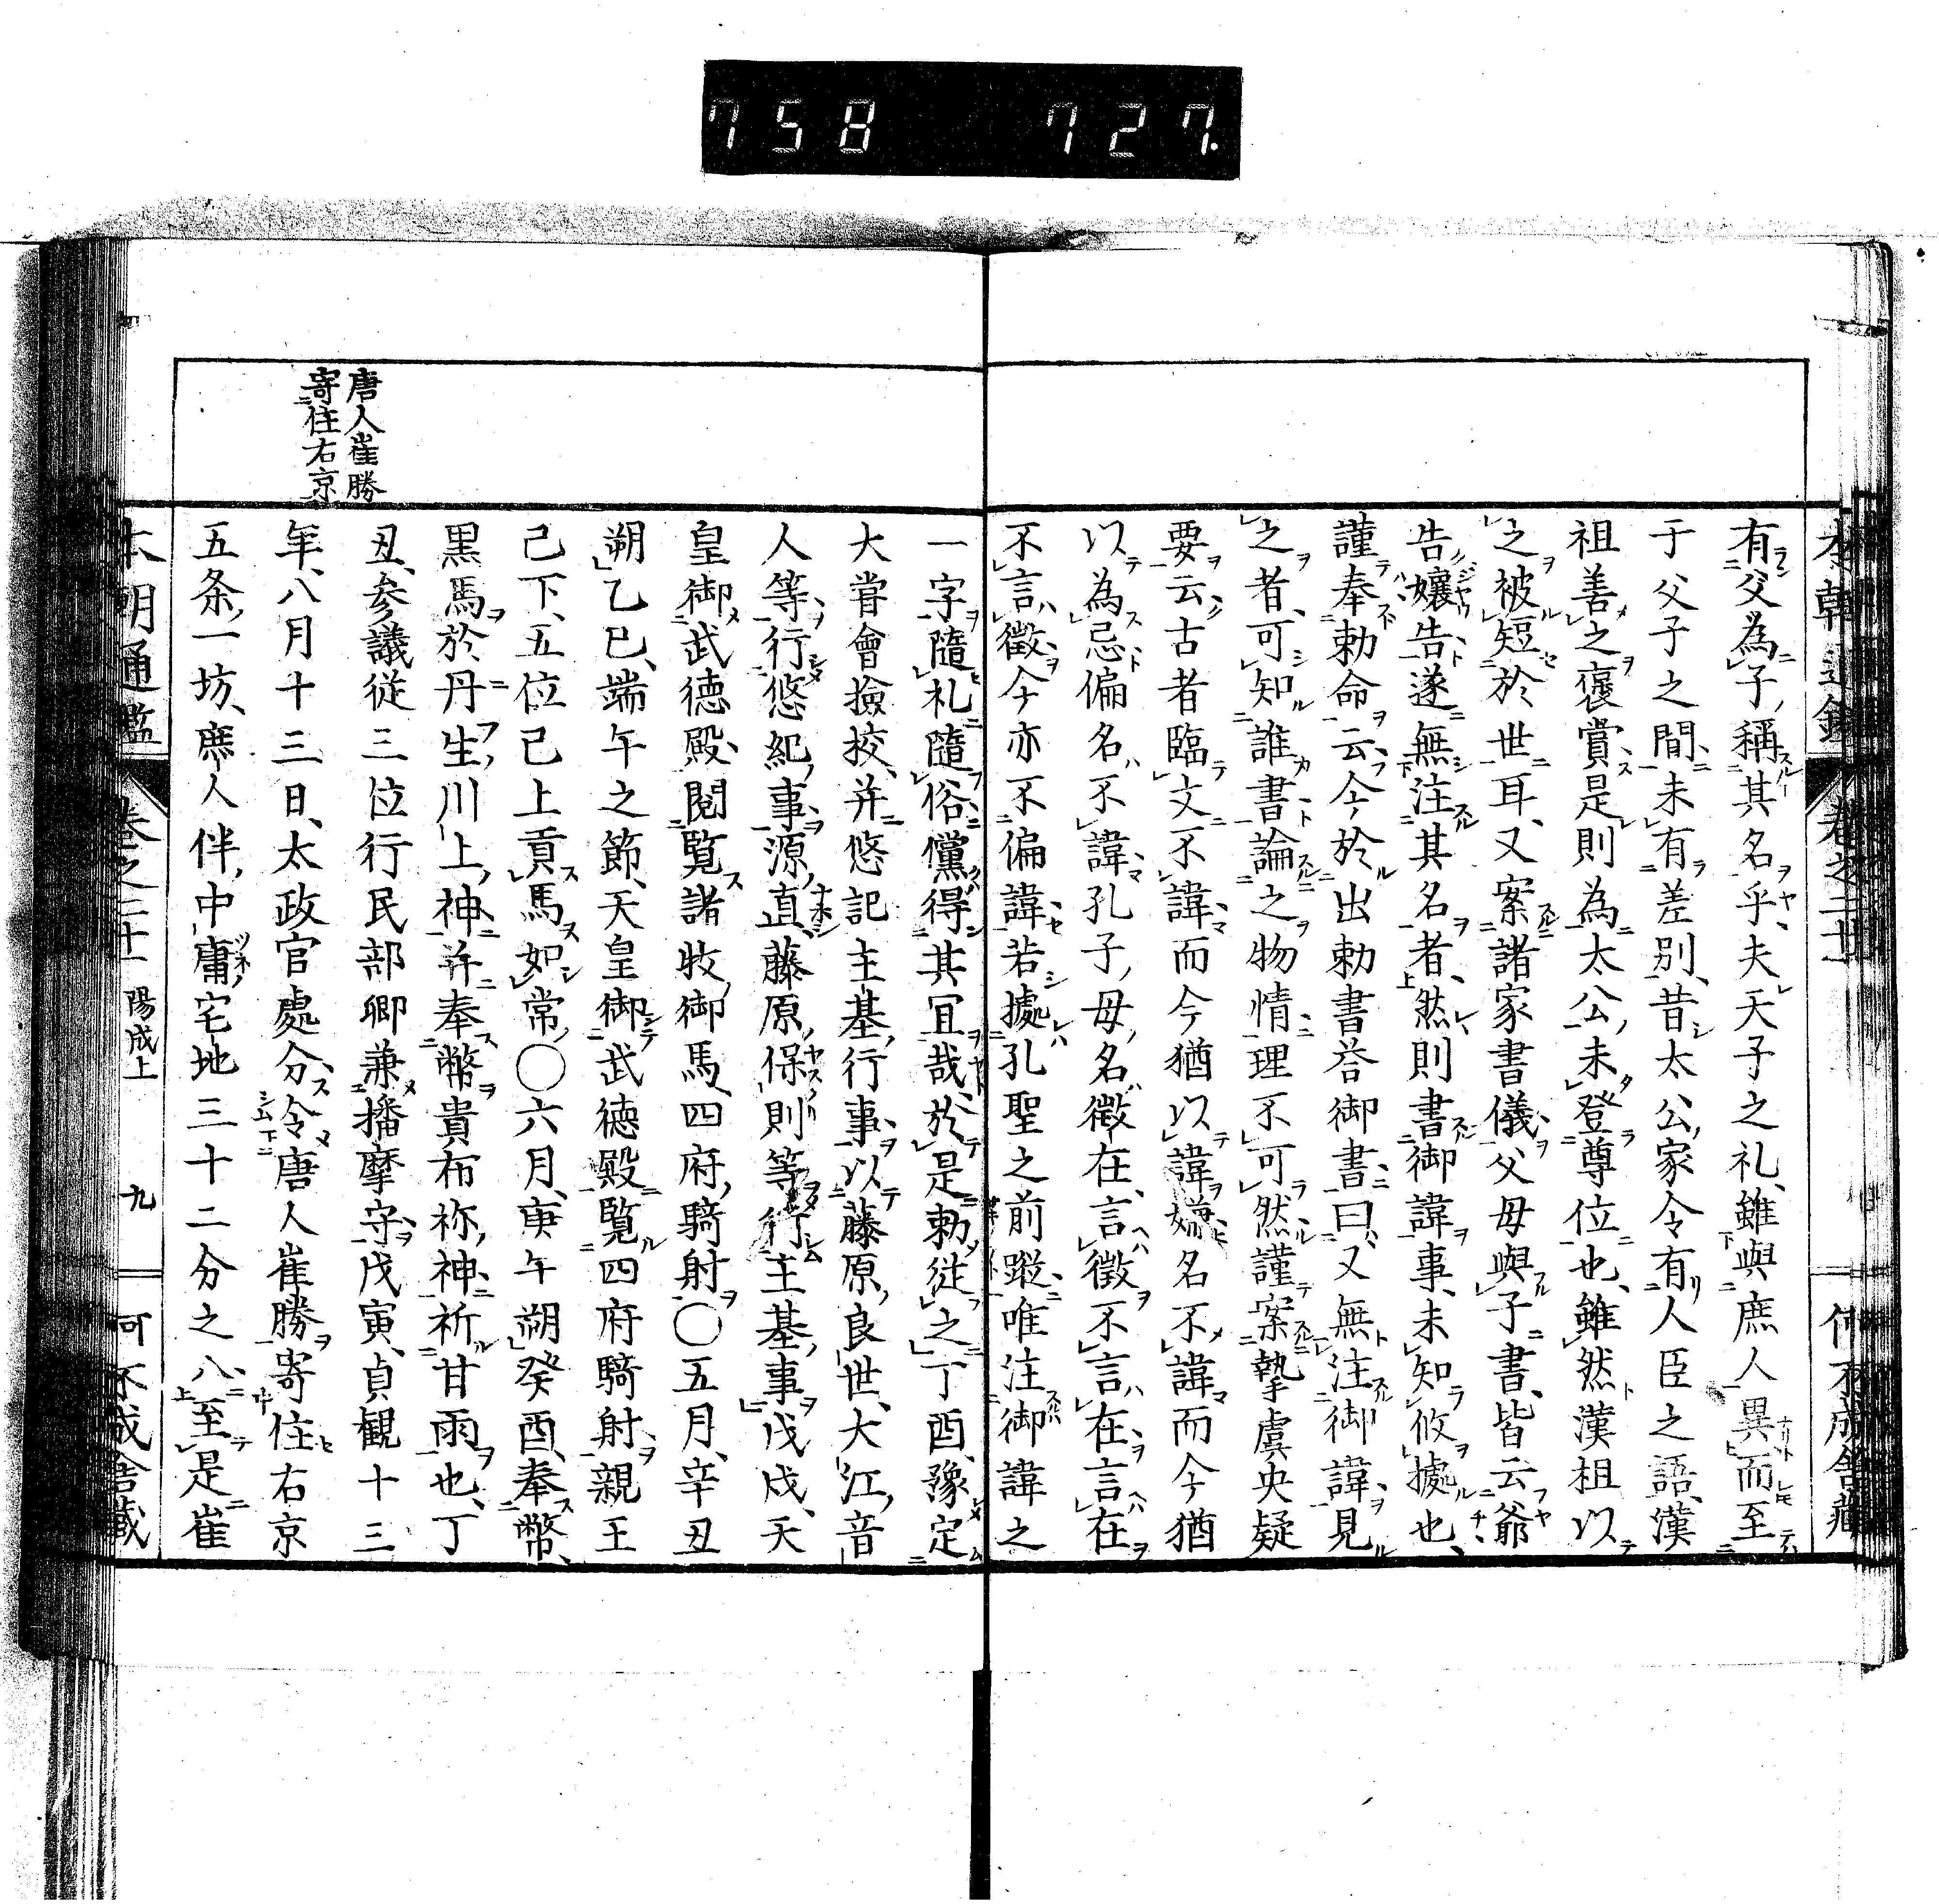 758 727.
本朝通鑑 卷之二十一
有父為子稱其名乎、夫天子之礼、雖與庶人異而至
于父子之間、未有差別、昔太公家令有人臣之語、漢
祖善之褒賞是則為太公未登尊位也、雖然漢祖以
之被短於世耳、又案諸家書儀父母與子書、皆云爺
告孃告遂無注其名者、然則書御諱事、未知攸據也、
謹奉勅命云今於出勅書荅御書曰、又無注御諱見
之者、可知誰書論之物情理不可然謹案摯虞央疑
要云古者臨文不諱而今猶以諱嫌名不諱而今猶
以為忌偏名不諱孔子母名徵在、言徵不言在言在
不言徵今亦不偏諱若據孔聖之前蹤唯注御諱之
一字隨礼隨俗儻得其宜哉、於是勅從之丁酉、豫定
大嘗會撿挍、并悠記主基行事以藤原良世、大江音
人等行悠紀事源直、藤原保則等行主基事戊戌、天
皇御武德殿、閲覧諸牧御馬、四府騎射〇五月、辛丑
朔乙巳、端午之節、天皇御武德殿覧四府騎射親王
己下、五位己上貢馬如常、〇六月、庚午朔癸酉、奉幣、
黒馬於丹生川上神并奉幣貴布祢神祈甘雨也、丁
丑、参議従三位行民部卿兼播摩守戊寅、貞観十三
年、八月十三日、太政官處分、令唐人崔勝寄住右京
五条一坊、庶人伴中庸宅地三十二分之八、至是崔
唐人崔勝
寄住右京
本朝通鑑 卷之二十一 陽成上 九 何不成舎藏